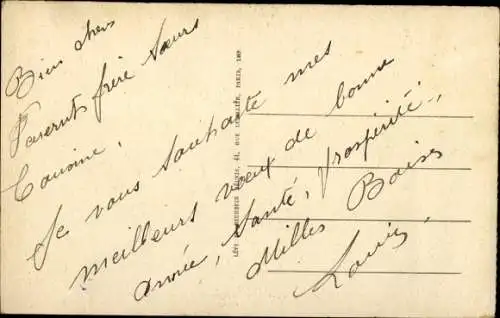 Bien chers
Parents frère Sœurs
Cousine,
Je vous souhaite mes
meilleurs vœux de bonne
année, Santé, Prospérité,
Milles Baises
Louis
LÉVY ET NEURDEIN RÉUNIS, 44, RUE LETELLIER, PARIS,